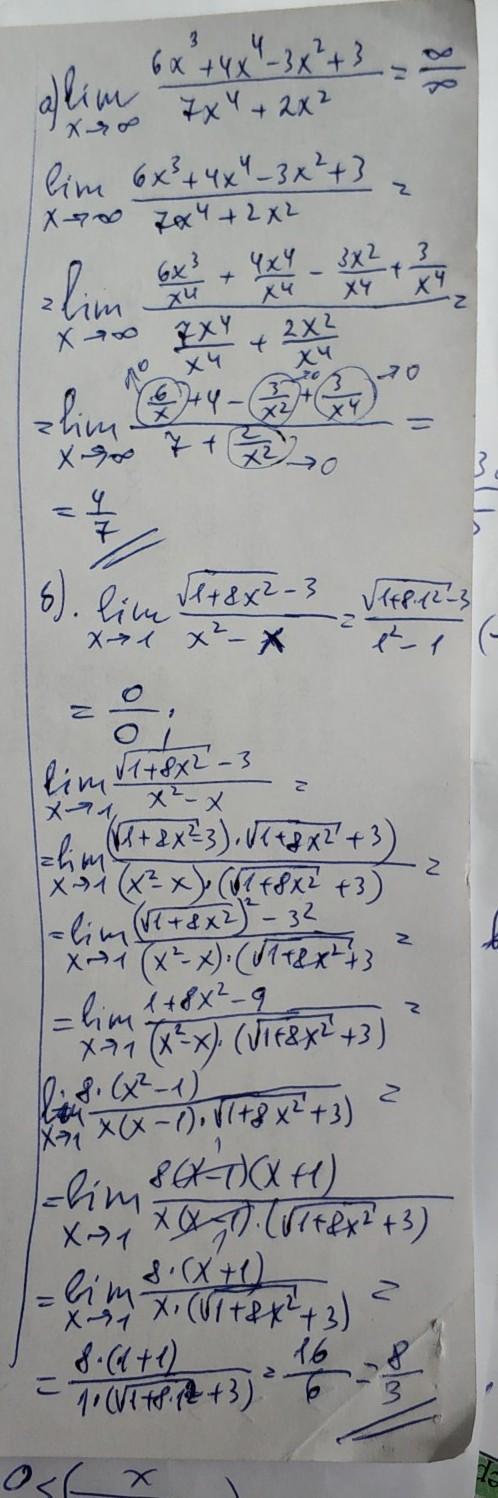 а) lim x→∞ (6x³+4x⁴-3x²+3)/(7x⁴+2x²) = ∞/∞
lim x→∞ (6x³+4x⁴-3x²+3)/(7x⁴+2x²) =
= lim x→∞ (6x³/x⁴ + 4x⁴/x⁴ - 3x²/x⁴ + 3/x⁴)/(7x⁴/x⁴ + 2x²/x⁴) =
= lim x→∞ (6/x →0 + 4 - 3/x² →0 + 3/x⁴ →0)/(7 + 2/x² →0) =
= 4/7
б). lim x→1 (√(1+8x²)-3)/(x²-x) = (√(1+8·1²)-3)/(1²-1)
= 0/0;
lim x→1 (√(1+8x²)-3)/(x²-x) =
= lim x→1 (√(1+8x²)-3)·√(1+8x²)+3)/(x²-x)·(√(1+8x²)+3) =
= lim x→1 ((√(1+8x²))²-3²)/(x²-x)·(√(1+8x²)+3 =
= lim x→1 (1+8x²-9)/(x²-x)·(√(1+8x²)+3) =
lim x→1 8·(x²-1)/x(x-1)·√(1+8x²)+3) =
= lim x→1 8(x-1)(x+1)/x(x-1)·(√(1+8x²)+3)
= lim x→1 8·(x+1)/x·(√(1+8x²)+3) =
= 8·(1+1)/1·(√(1+8·1²)+3) = 16/6 = 8/3